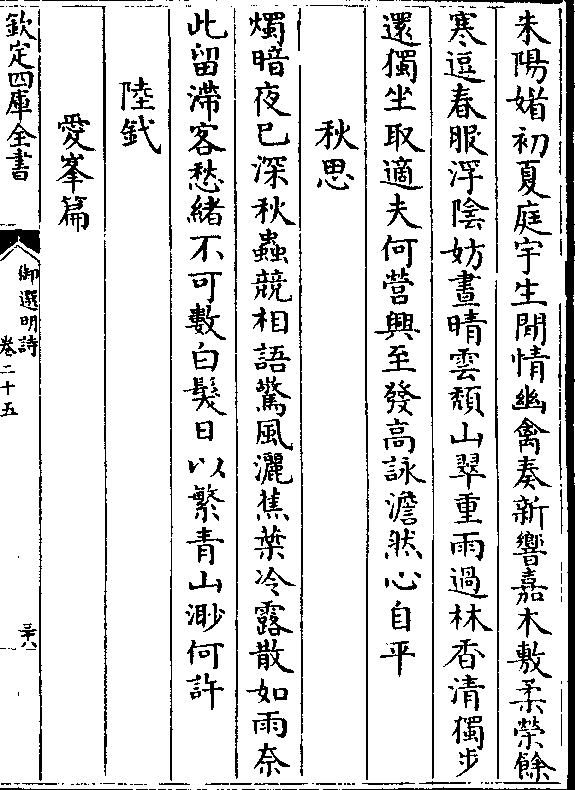 朱陽媚初夏庭宇生閒情幽禽奏新響嘉木敷柔榮餘
寒逗春服浮陰妨晝晴雲頽山翠重雨過林香清獨步
還獨坐取適夫何營興至發高詠澹然心自平
秋思
燭暗夜已深秋蟲競相語驚風灑蕉葉冷露散如雨奈
此留滯客愁緒不可數白髮日以繁青山渺何許
陸釴
愛峯篇
欽定四庫全書
御選明詩
卷二十五
三十八